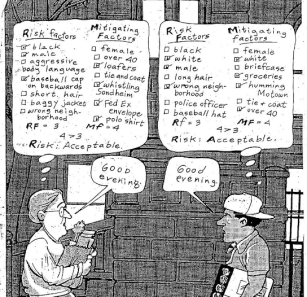 Risk factors
☑ black
☑ male
☐ aggressive
body language
☑ baseball cap
on backwards
☐ short hair
☐ baggy jacket
☐ wrong neigh-
borhood
RF = 3
Mitigating
Factors
☐ female
☐ over 40
☑ loafers
☐ tie and coat
☑ whistling
Sondheim
☑ Fed Ex
envelope
☑ polo shirt
MF = 4
4>3
Risk: Acceptable.
Risk
factors
☐ black
☑ white
☑ male
☐ long hair
☑ wrong neigh-
borhood
☐ police officer
☐ baseball hat
RF = 3
Mitigating
factors
☐ female
☑ white
☐ briefcase
☑ groceries
☑ humming
Motown
☐ tie + coat
☑ over 40
MF = 4
4>3
Risk: Acceptable.
Good
evening.
Good
evening.